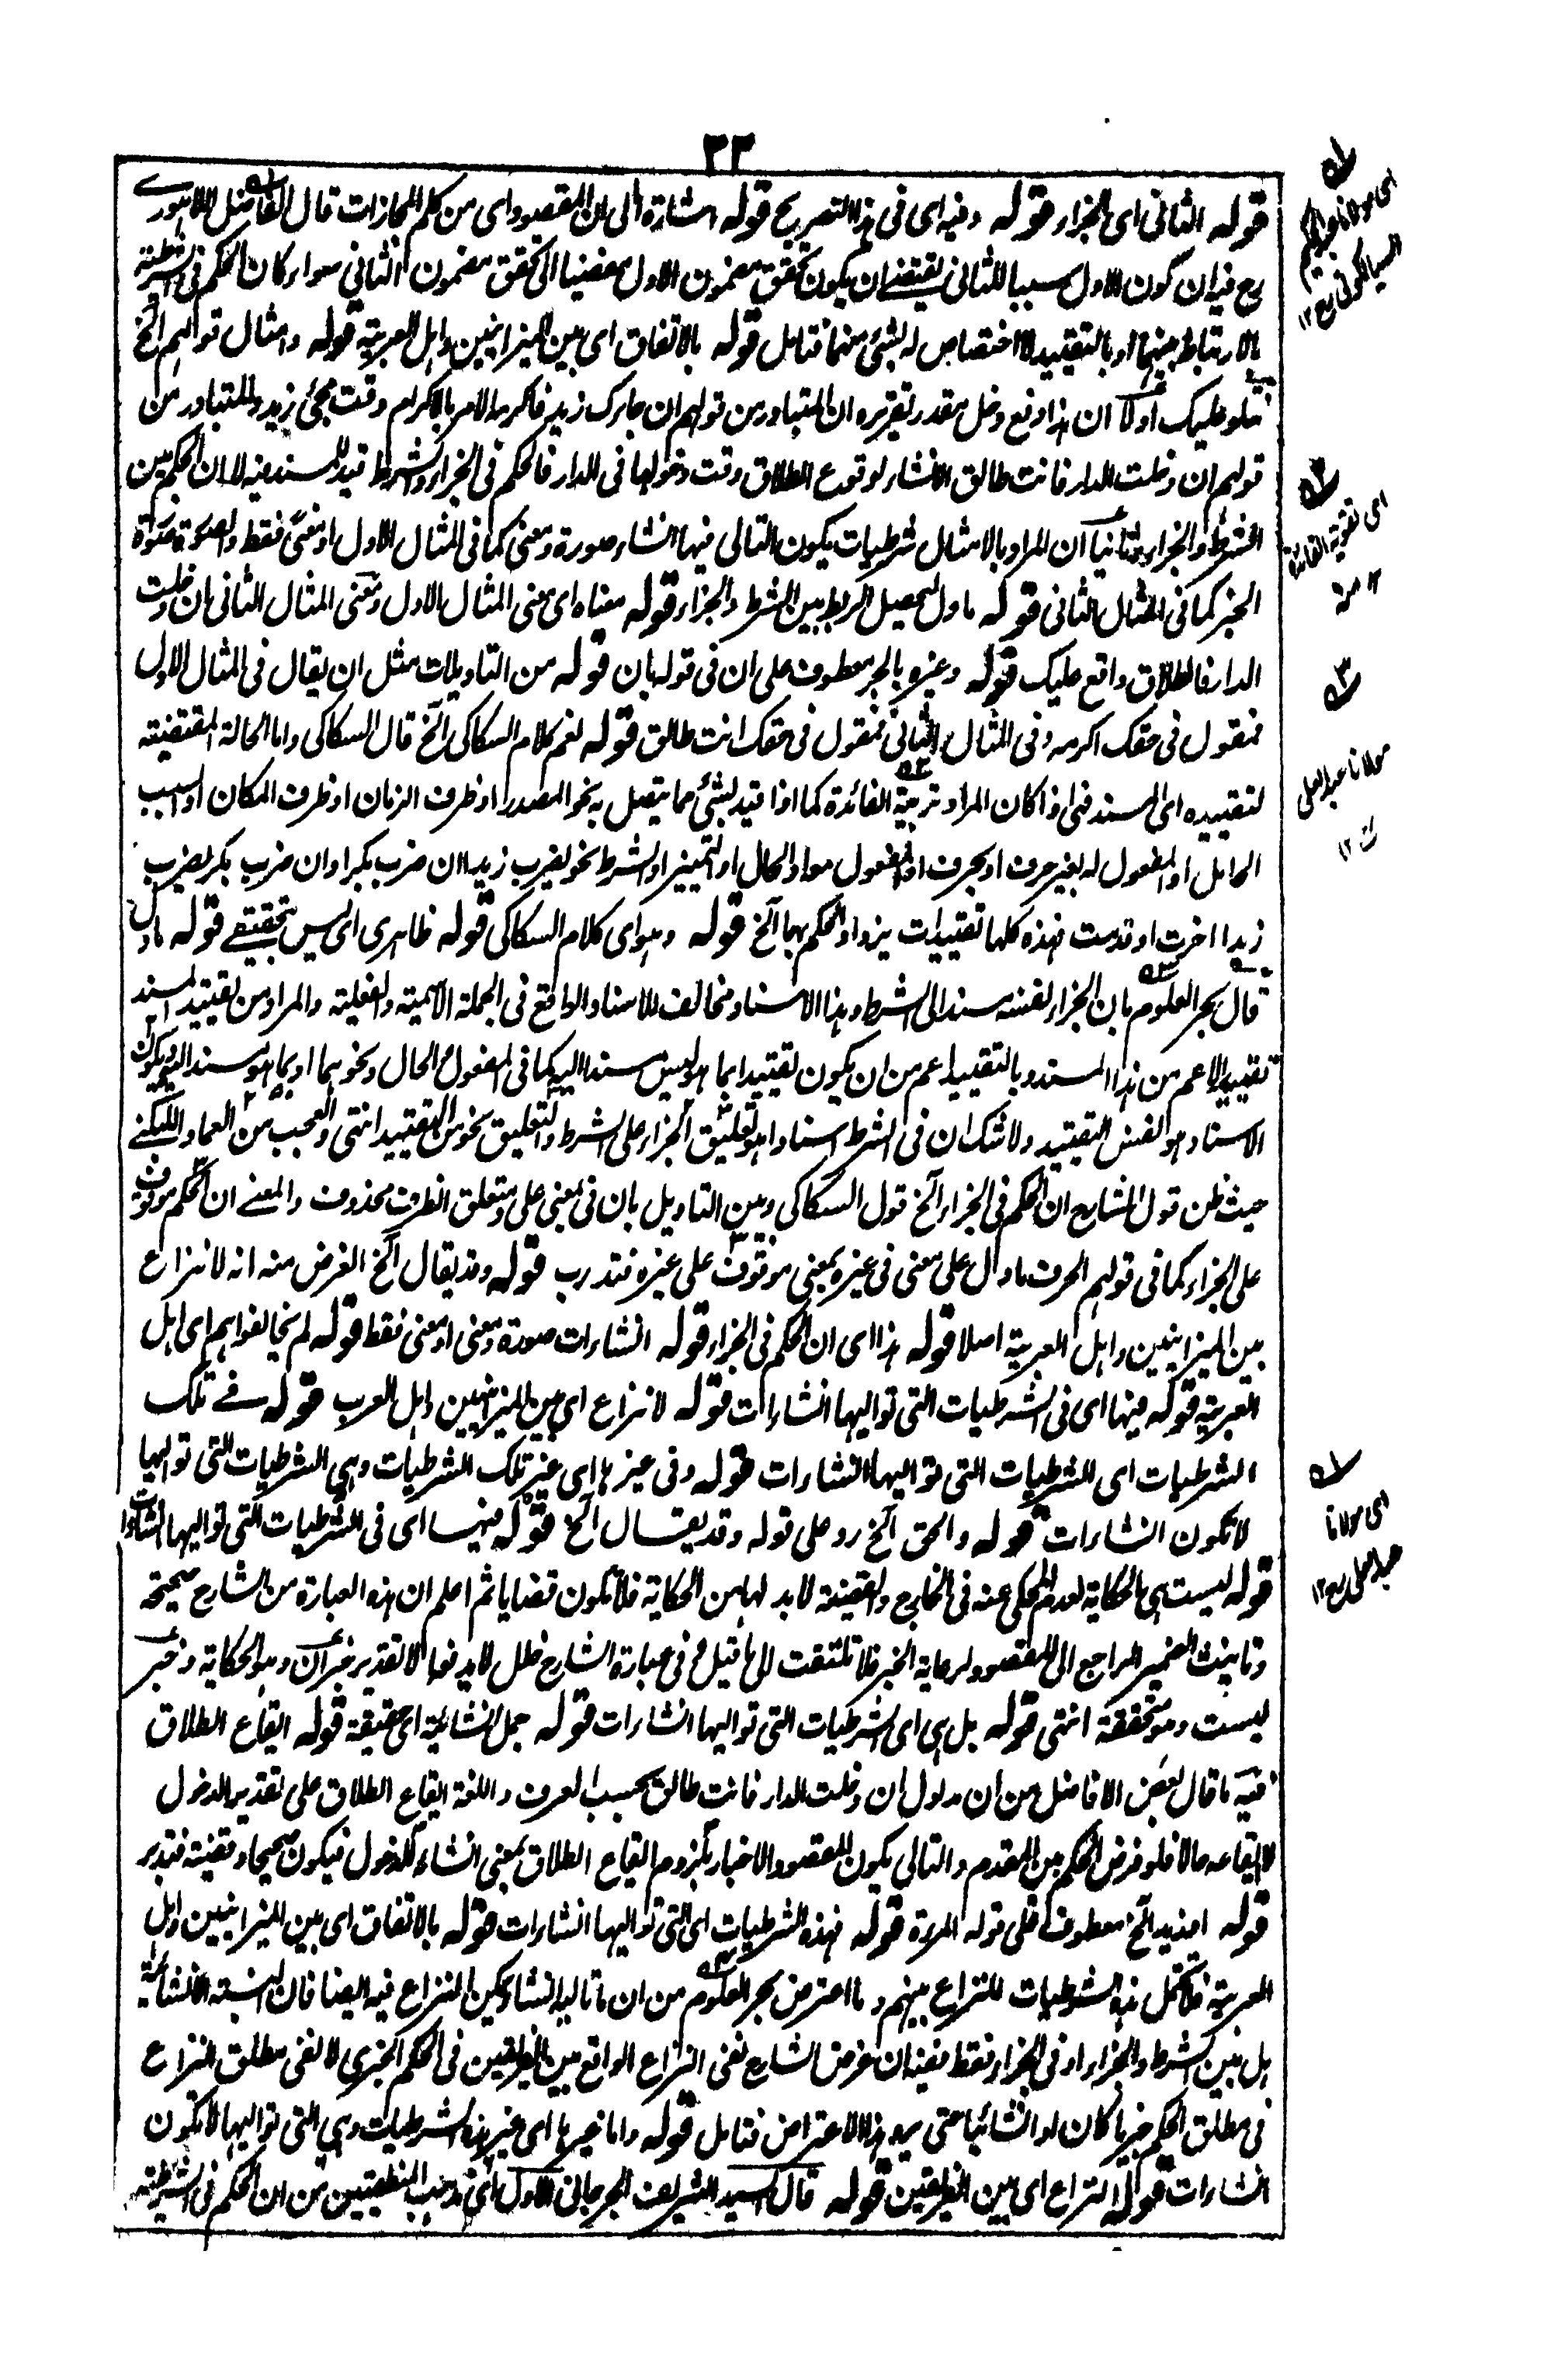 ٣٣
قوله الثانی ای الجزاء قوله وفیه ای فی هذا التصریح قوله اشارة الی ان المقصود ای من کلم المجازات قال الفاضل اللاهوری
رح فیه ان کون الاول سببا للثانی یقتضے ان یکون تحقق مضمون الاول مفضیا الی تحقق مضمون الثانی سواء کان الحکم فی الشرطیة
بالارتباط بینهما او بالتقیید لا اختصاص له بشئ منهما فتامل قوله بالاتفاق ای بین المیزانیین واهل العربیة قوله وامثال قولهم الخ
یتلو علیک اولا ان هذا دفع دخل مقدر تقریره ان المتبادر من قولهم ان جاءک زید فاکرمه الامر بالاکرام وقت مجئ زید والمتبادر من
قولهم ان دخلت الدار فانت طالق الانشاء لوقوع الطلاق وقت دخولها فی الدار فالحکم فی الجزاء والشرط قید للمسند فیه لا ان الحکم بین
الشرط والجزاء وثانیا ان المراد بالامثال شرطیات یکون التالی فیها انشاء صورة ومعنی کما فی المثال الاول او معنی فقط والصورة صورة
الخبر کما فی المثال الثانی قوله ماول لتحصیل الربط بین الشرط والجزاء قوله معناه ای معنی المثال الاول ومعنی المثال الثانی ان دخلت
الدار فالطلاق واقع علیک قوله وغیره بالجر معطوف علی ان فی قوله بان قوله من التاویلات مثل ان یقال فی المثال الاول
فنقول فی حقک اکرمه وفی المثال الثانی فنقول فی حقک انت طالق قوله نعم کلام السکاکی الخ قال السکاکی واما الحالة المقتضیة
لتقییده ای المسند فهی اذا کان المراد تربیة الفائدة کما اذا قید بشئ مما یتصل به نحو المصدر او ظرف الزمان او ظرف المکان او السبب
الحامل او المفعول له بغیر حرف او بحرف او المفعول معه او الحال او التمییز او الشرط نحو یضرب زیدا ان ضرب بکر او ان ضرب بکر یضرب
زیدا اخرت او قدمت فهذه کلها تقییدات یزداد الحکم بها الخ قوله وهو ای کلام السکاکی قوله ظاهری ای لیس بتحقیقے قوله ماول
قال بحر العلوم بان الجزاء لنفسه مسند الی الشرط وهذا الاسناد مخالف للاسناد الواقع فی الجملة الاسمیة والفعلیة والمراد من تقیید المسند
تقیید الاعم من هذا المسند وبالتقیید اعم من ان یکون تقییدا بما هو لیس مسندا الیه کما فی المفعول والحال ونحوهما او بما هو مسند الیه ویکون
الاسناد هو نفس التقیید ولا شک ان فی الشرط اسنادا هو تعلیق الجزاء علی الشرط والتعلیق نحو من التقیید انتهی والعجب من العماد اللبکنی
حیث ظن قول الشارح ان الحکم فی الجزاء الخ قول السکاکی وبین التاویل بان فی بمعنی علی ومتعلق الظرف محذوف والمعنے ان الحکم موقوف
علی الجزاء کما فی قولهم الحرف ما دل علی معنی فی غیره بمعنی موقوف علی غیره فتدرب قوله وقد یقال الخ الغرض منه انه لا نزاع
بین المیزانیین واهل العربیة اصلا قوله هذا ای ان الحکم فی الجزاء قوله انشاءات صورة ومعنی او معنی فقط قوله لم یخالفواهم ای اهل
العربیة قوله فیها ای فی الشرطیات التی توالیها انشاءات قوله لا نزاع ای بین المیزانیین واهل العرب قوله فے تلک
الشرطیات ای الشرطیات التی توالیها انشاءات قوله وفی غیرها ای غیر تلک الشرطیات وهی الشرطیات التی توالیها
لا تکون انشاءات قوله والحق الخ رد علی قوله وقد یقال الخ قوله فیها ای فی الشرطیات التی توالیها انشاءات
قوله لیست هی بالحکایة لعدم المحکی عنه فی الخارج والقضیة لا بد لها من الحکایة فلا تکون قضایا ثم اعلم ان هذه العبارة من الشارح صحیحة
وتانیث الضمیر الراجع الی المقصود لرعایة الخبر فلا تلتفت الی ما قیل فی عبارة الشارح خلل لا بد فیها الا تقدیر خبر ان وهو الحکایة وخبر
لیست وهو متحققة انتهی قوله بل هی ای الشرطیات التی توالیها انشاءات قوله جمل انشائیة ای حقیقة قوله ایقاع الطلاق
فیه ما قال بعض الافاضل من ان مدلول ان دخلت الدار فانت طالق بحسب العرف واللغة ایقاع الطلاق علی تقدیر الدخول
لا ایقاعه حالا فلو فرض الحکم بین المقدم والتالی یکون المقصود الاخبار بلزوم ایقاع الطلاق بمعنی انشائه للدخول فیکون صحیحا وقضیة فتدبر
قوله امذید الخ معطوف علی قوله المرءة قوله فهذه الشرطیات ای التی توالیها انشاءات قوله بالاتفاق ای بین المیزانیین واهل
العربیة فلا تحمل هذه الشرطیات للنزاع بینهم وما اعترض بحر العلوم من ان ما تالیه انشاء یمکن النزاع فیه ایضا فان النسبة الانشائیة
هل بین الشرط والجزاء او فی الجزاء فقط ففیه ان غرض الشارح نفی النزاع الواقع بین الفریقین فی الحکم الخبری لا نفی مطلق النزاع
فی مطلق الحکم خبریا کان او انشائیا حتی یرد هذا الاعتراض فتامل قوله واما غیرها ای غیر هذه الشرطیات وهی التی توالیها لا تکون
انشاءات قوله النزاع ای بین الفریقین قوله قال السید الشریف الجرجانی الاول ای مذهب المنطقیین من ان الحکم فی الشرطیة
ای مولانا عبدالحکیم
السیالکوٹی رح ١٢
ای تقویة الفائدة
١٢ منه
مولانا عبدالعلی
١٢
ای مولانا
عبدالعلی رح ١٢